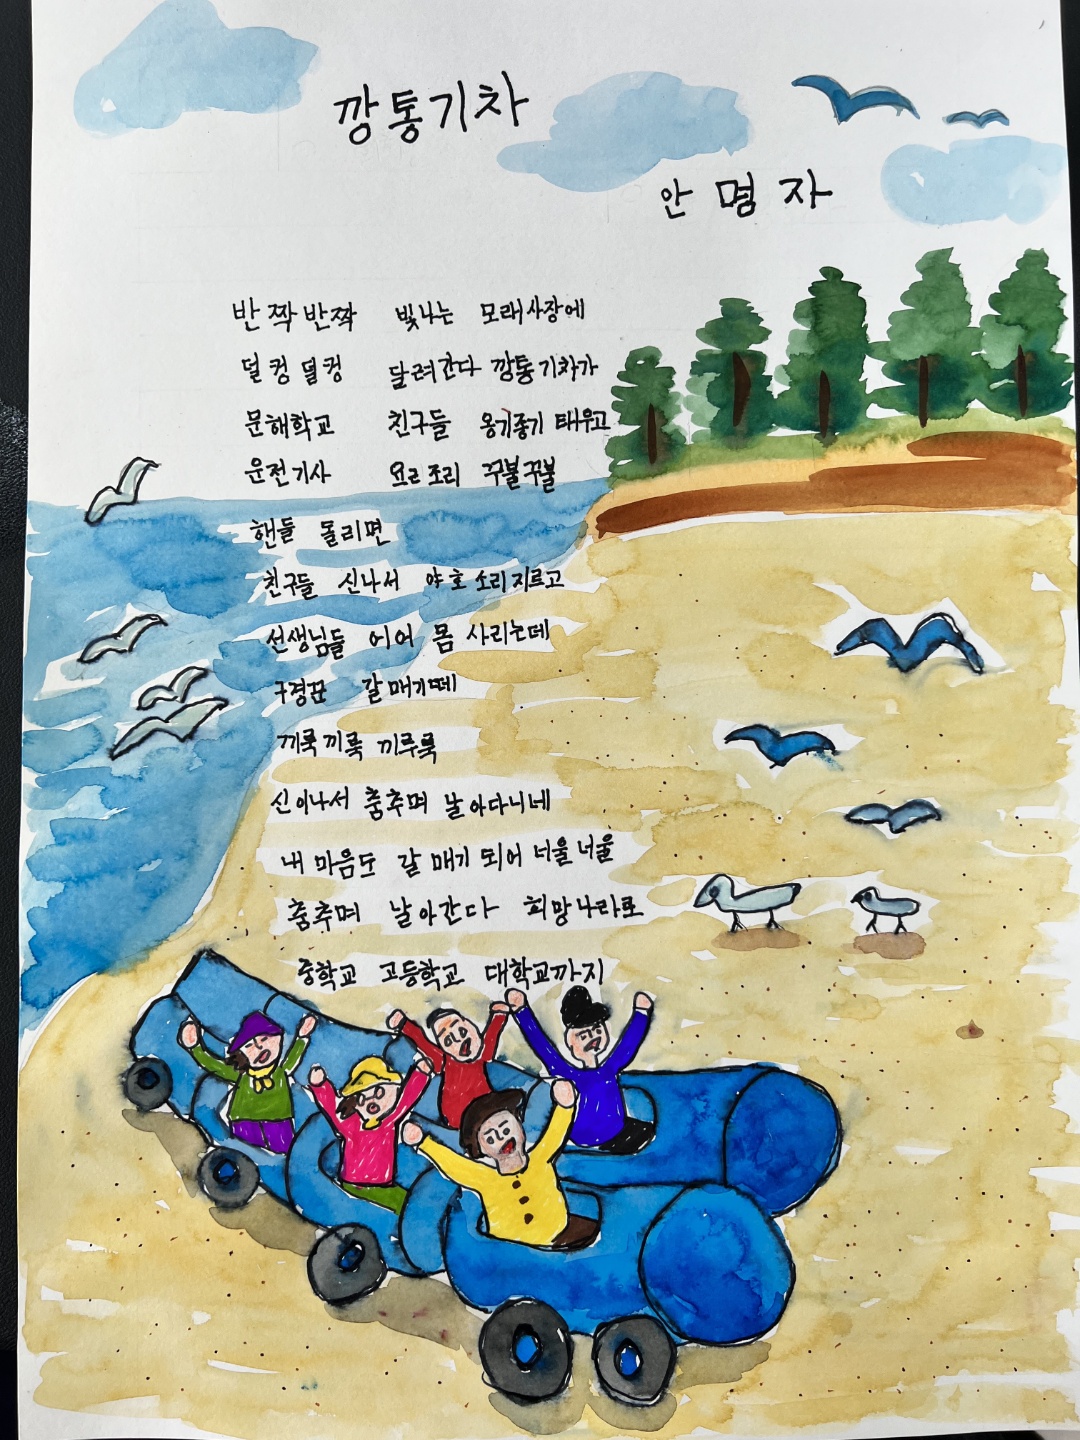 깡통기차
안명자
반짝반짝 빛나는 모래사장에
덜컹덜컹 달려간다 깡통기차가
문해학교 친구들 옹기종기 태우고
운전기사 요리조리 꾸불꾸불
핸들 돌리면
친구들 신나서 야호 소리지르고
선생님들 어어 몸 사리는데
구경꾼 갈매기떼
끼룩끼룩 끼루룩
신이나서 춤추며 날아다니네
내 마음도 갈매기 되어 너울너울
춤추며 날아간다 희망나라로
중학교 고등학교 대학교까지